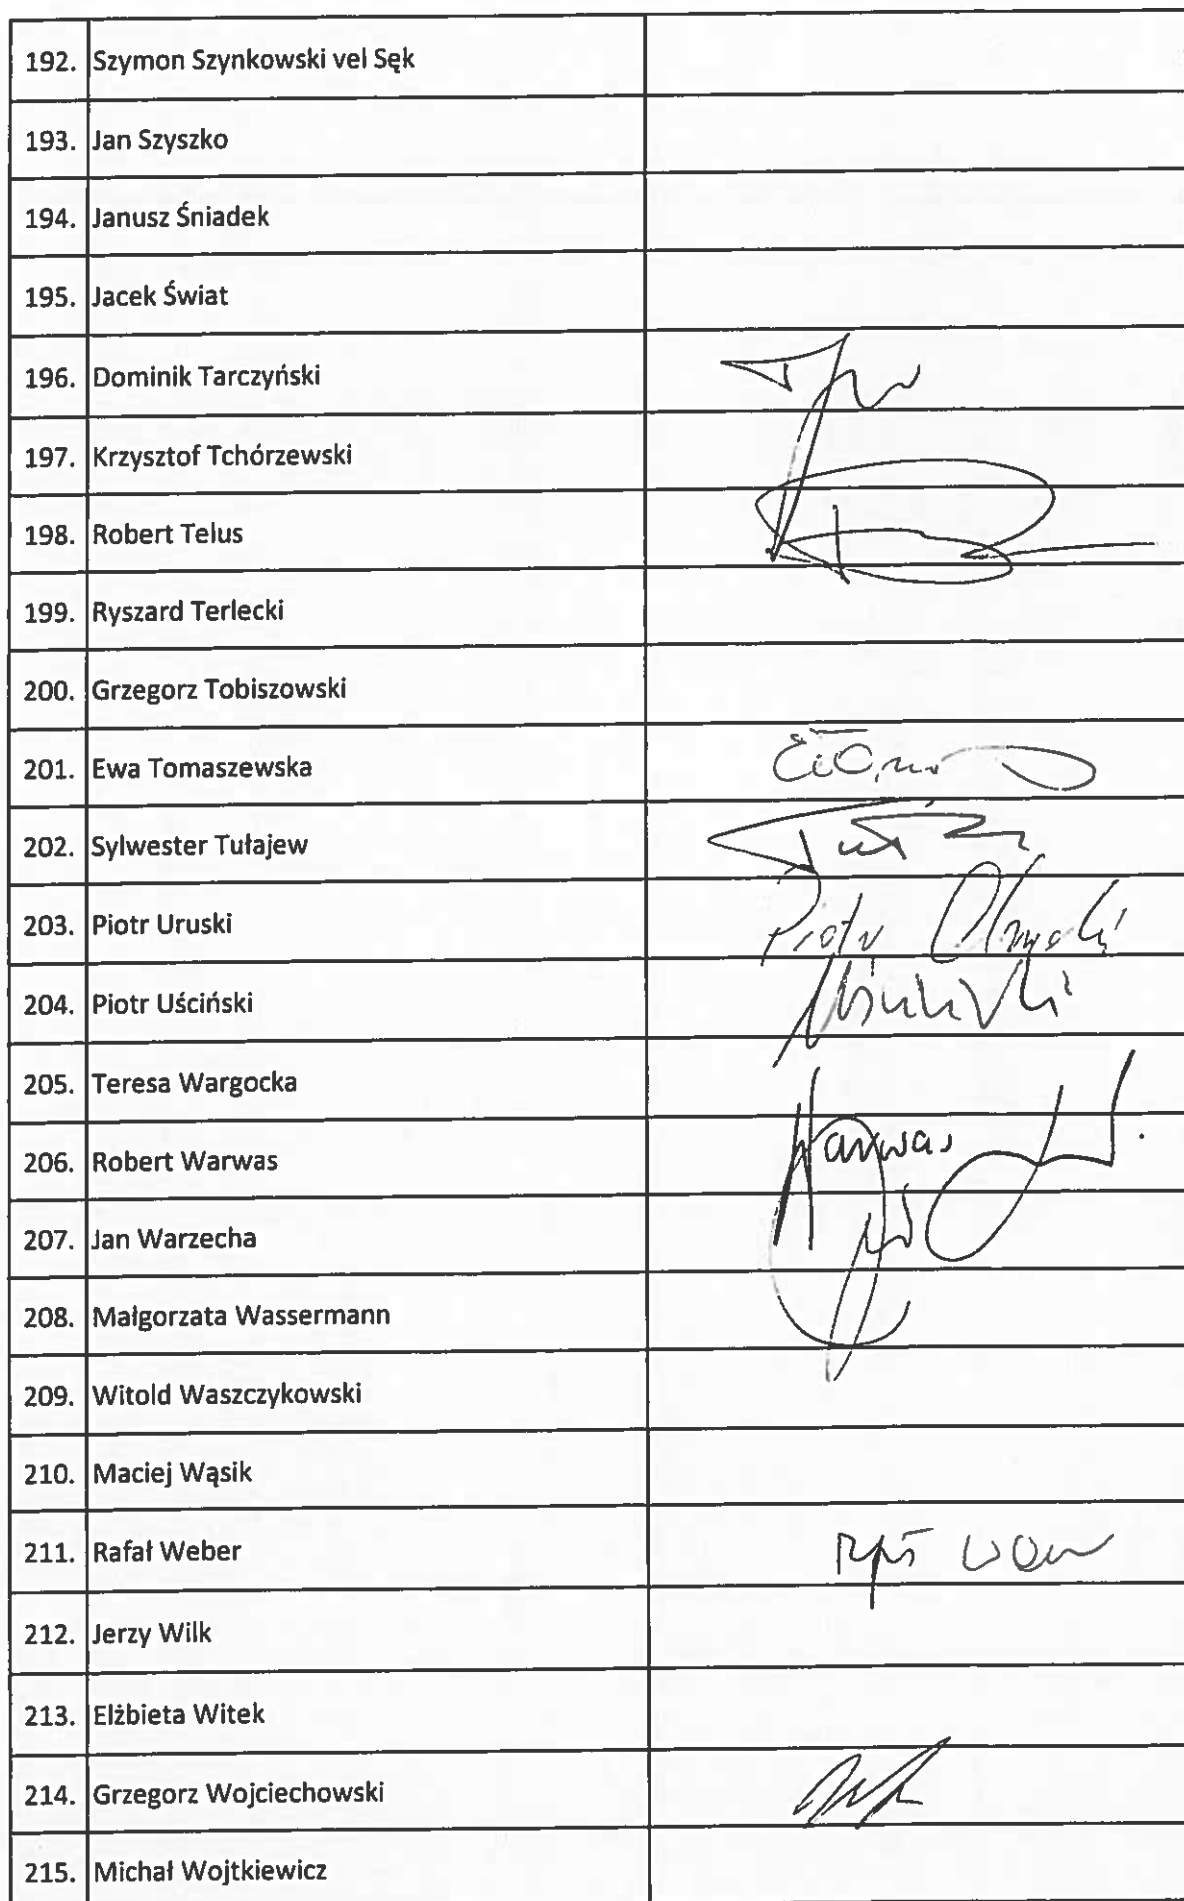 192. Szymon Szynkowski vel Sęk
193. Jan Szyszko
194. Janusz Śniadek
195. Jacek Świat
196. Dominik Tarczyński
197. Krzysztof Tchórzewski
198. Robert Telus
199. Ryszard Terlecki
200. Grzegorz Tobiszowski
201. Ewa Tomaszewska
202. Sylwester Tułajew
203. Piotr Uruski Piotr
204. Piotr Uściński
205. Teresa Wargocka
206. Robert Warwas Warwas
207. Jan Warzecha
208. Małgorzata Wassermann
209. Witold Waszczykowski
210. Maciej Wąsik
211. Rafał Weber
212. Jerzy Wilk
213. Elżbieta Witek
214. Grzegorz Wojciechowski
215. Michał Wojtkiewicz